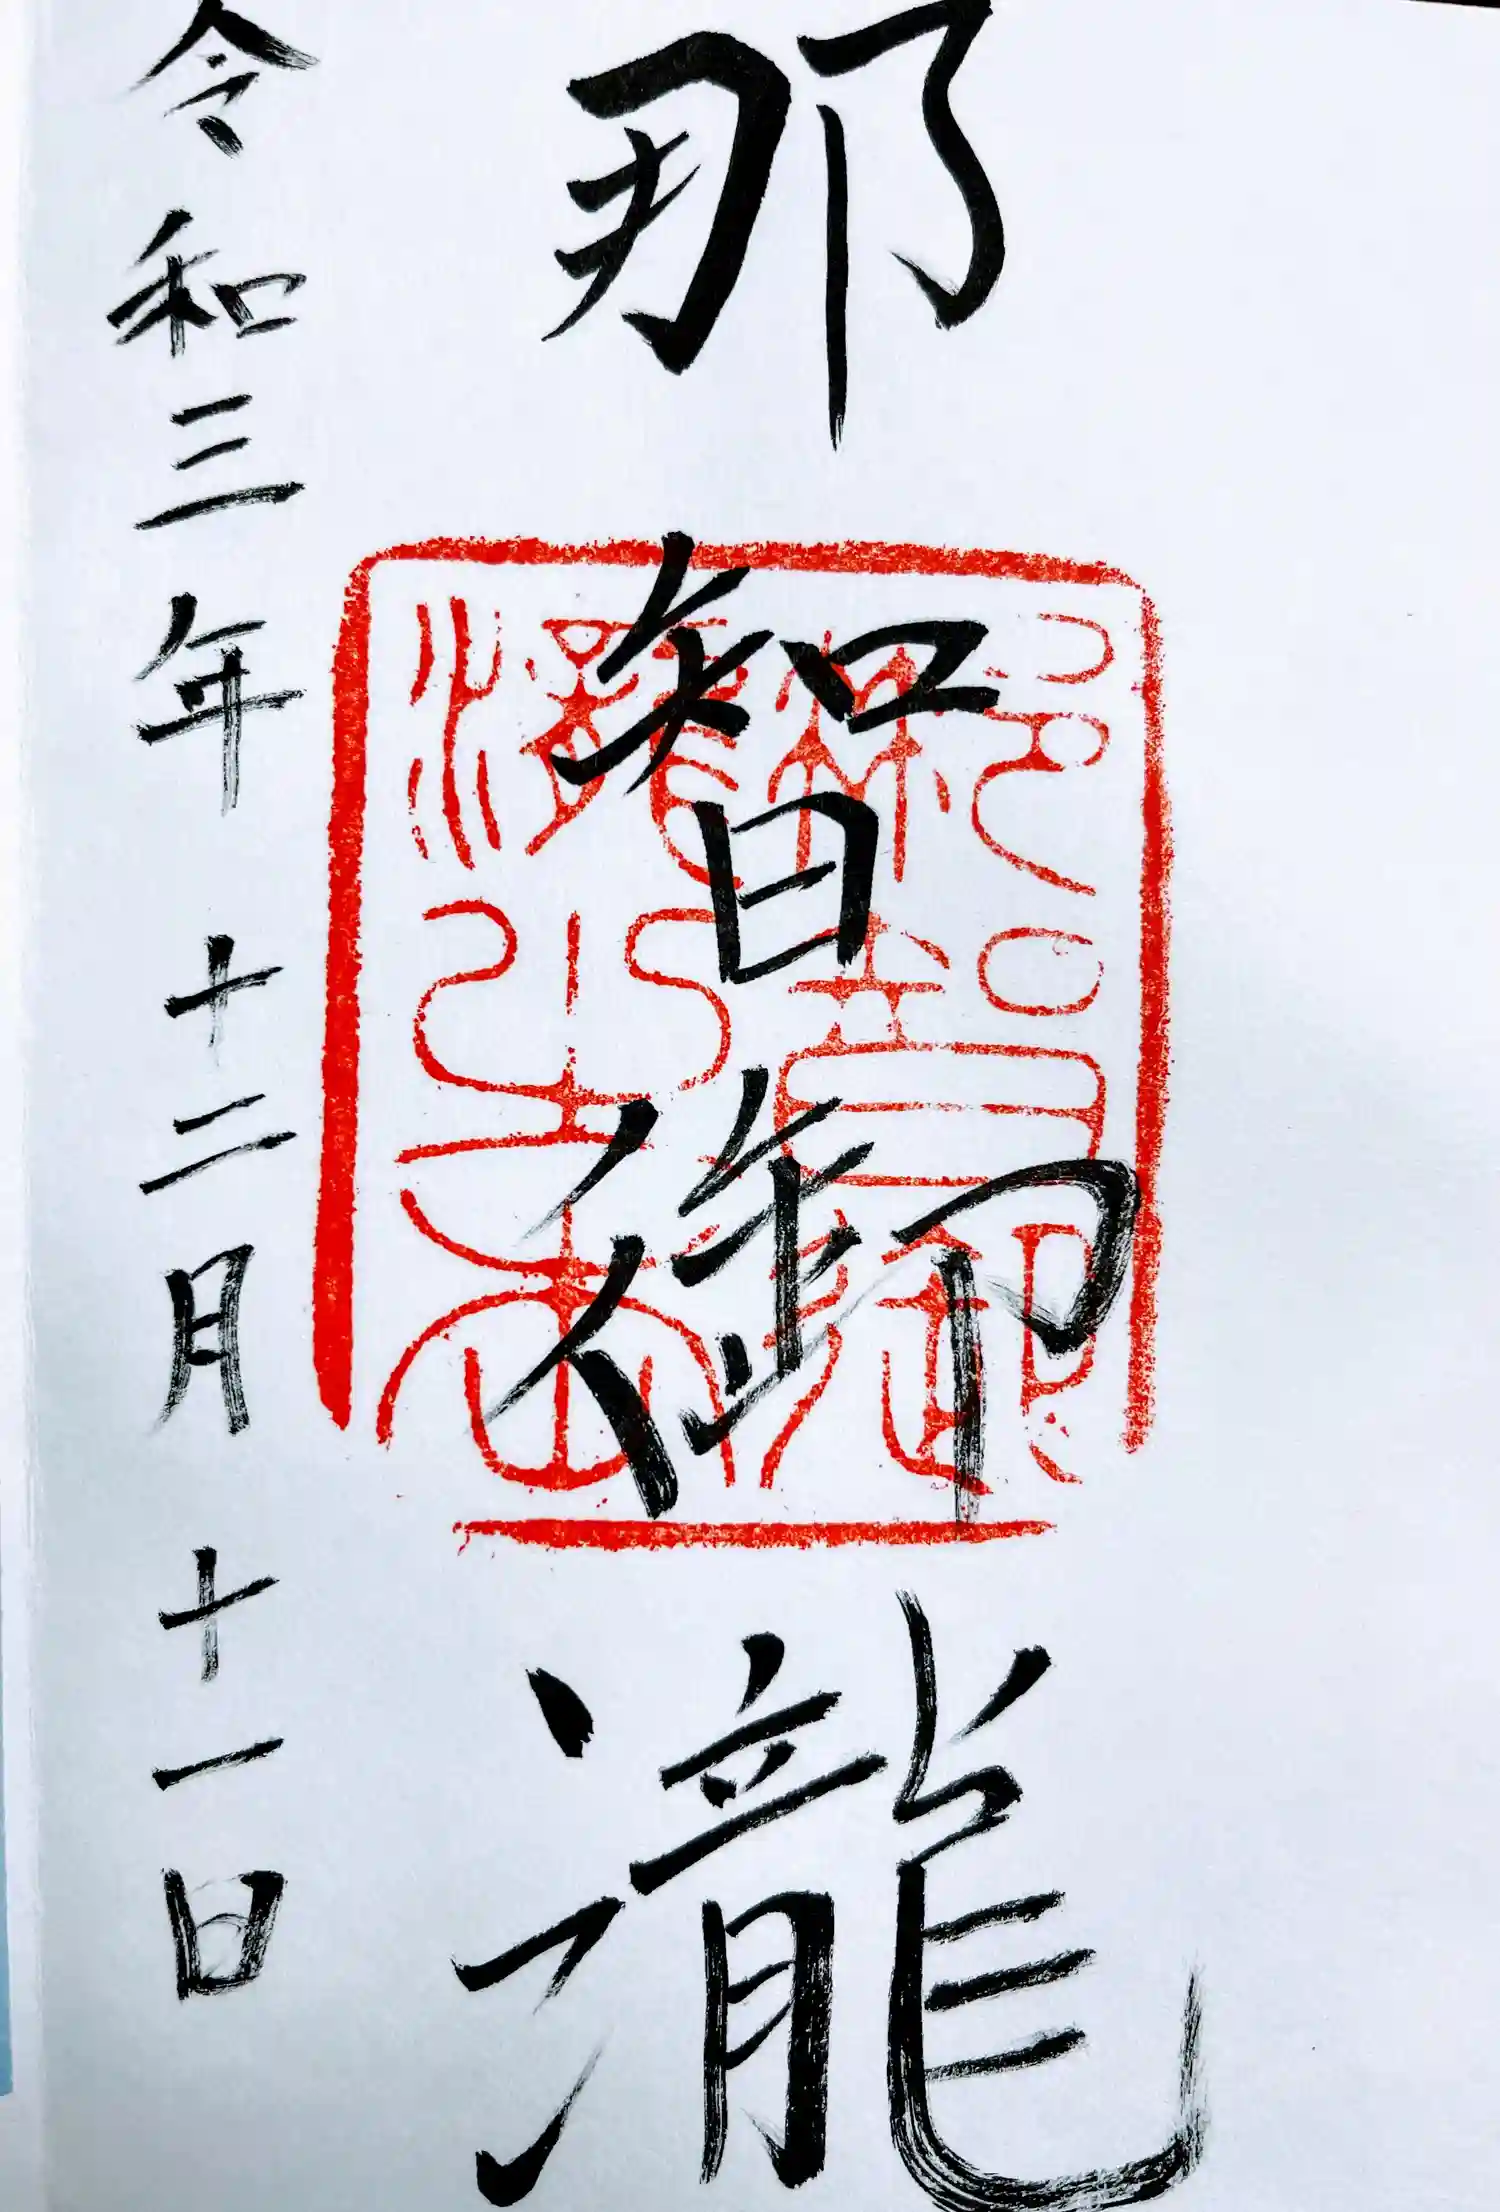 那智御瀧
令和三年十二月十一日